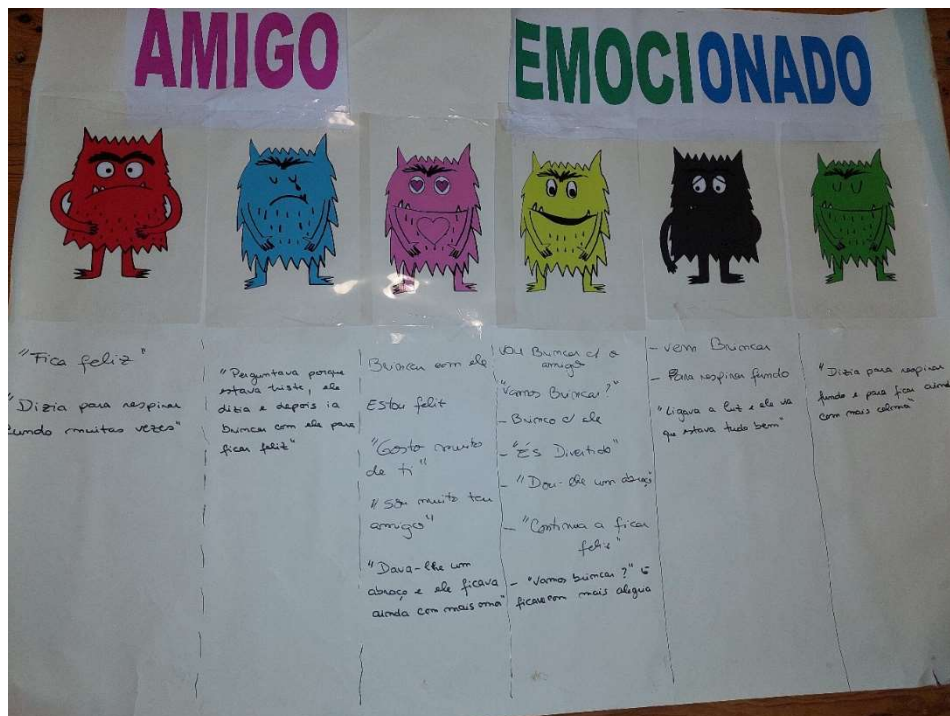 AMIGO
EMOCIONADO
"Fica feliz"
"Dizia para respirar
fundo muitas vezes"
"Perguntava porque
estava triste, ele
dizia e depois ia
brincar com ele para
ficar feliz"
Brincar com ele
Estou feliz
"Gosto muito
de ti"
"Sou muito teu
amigo"
"Dava-lhe um
abraço e ele ficava
ainda com mais amor"
Vou Brincar c/ o
amigo
"Vamos Brincar?"
- Brinco c/ ele
- "És Divertido"
- "Dou-lhe um abraço"
- "Continua a ficar
feliz"
- "Vamos brincar?" e
ficavam com mais alegria
- vem Brincar
- Para respirar fundo
"Ligava a luz e ele via
que estava tudo bem"
"Dizia para respirar
fundo e para ficar ainda
com mais calma"